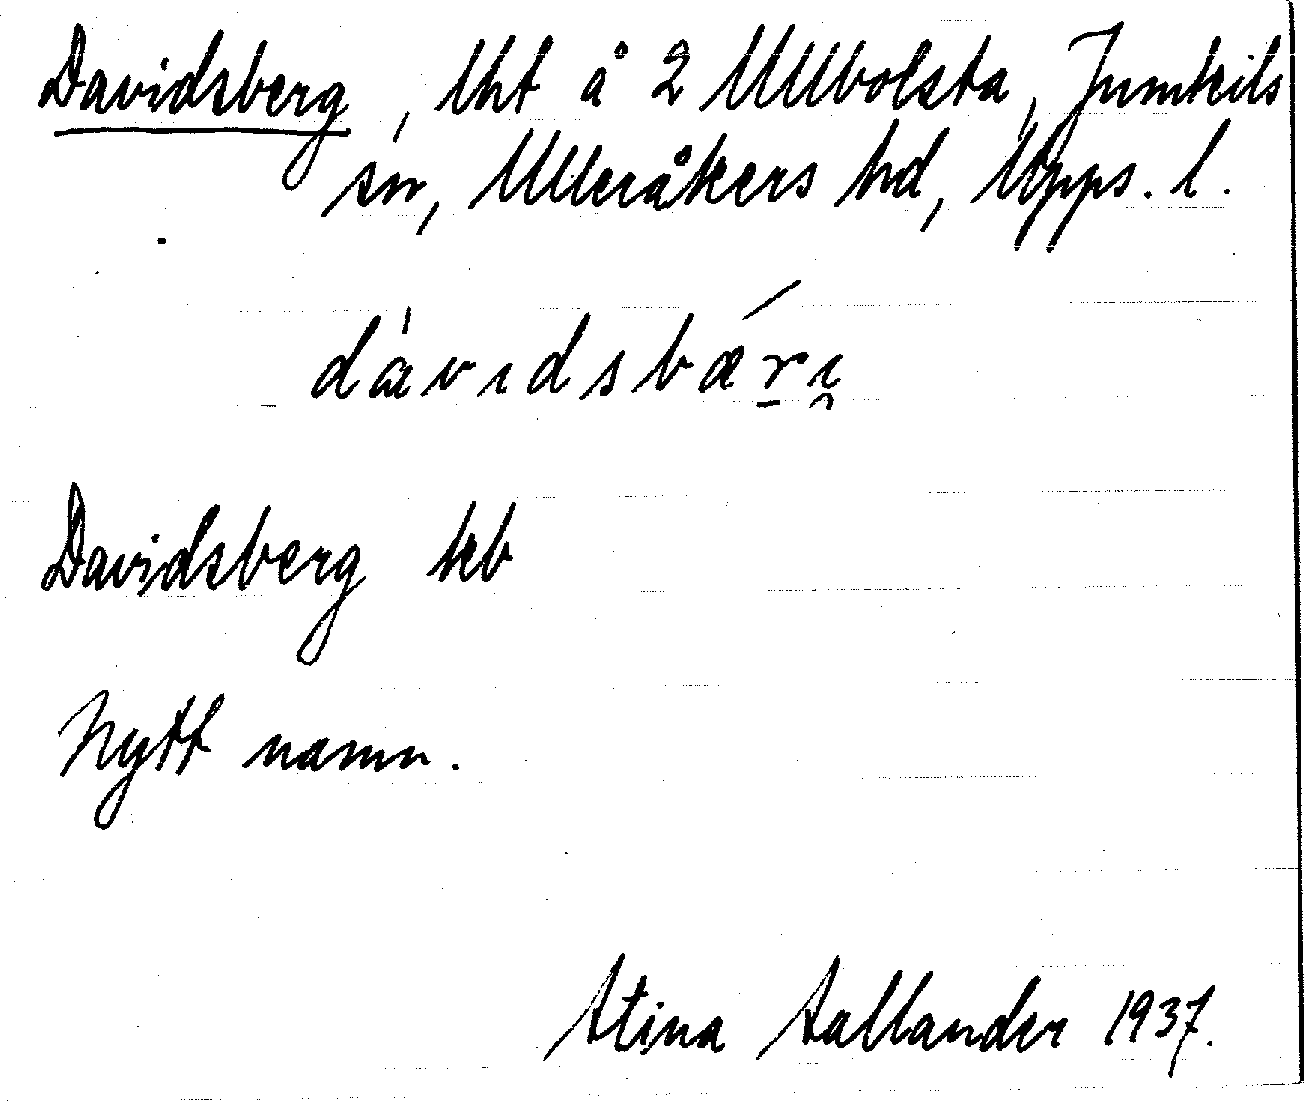 Davidsberg, lht å 2 Ullbolsta, Jumkils
sn, Ulleråkers hd, Upps. l.
dàvıdsbær̠i̯
Davidsberg kb
Nytt namn.
Stina Sallander 1937.